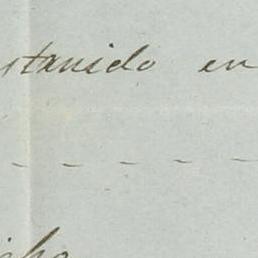 stanido en
icho